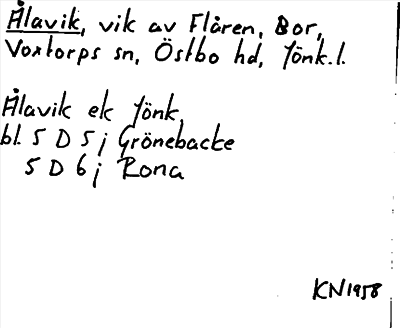 Ålavik, vik av Flåren, Bor,
Voxtorps sn, Östbo hd, Jönk. l.
Ålavik ek Jönk,
bl. 5 D 5 j Grönebacke
5 D 6 j Rona
KN 1958